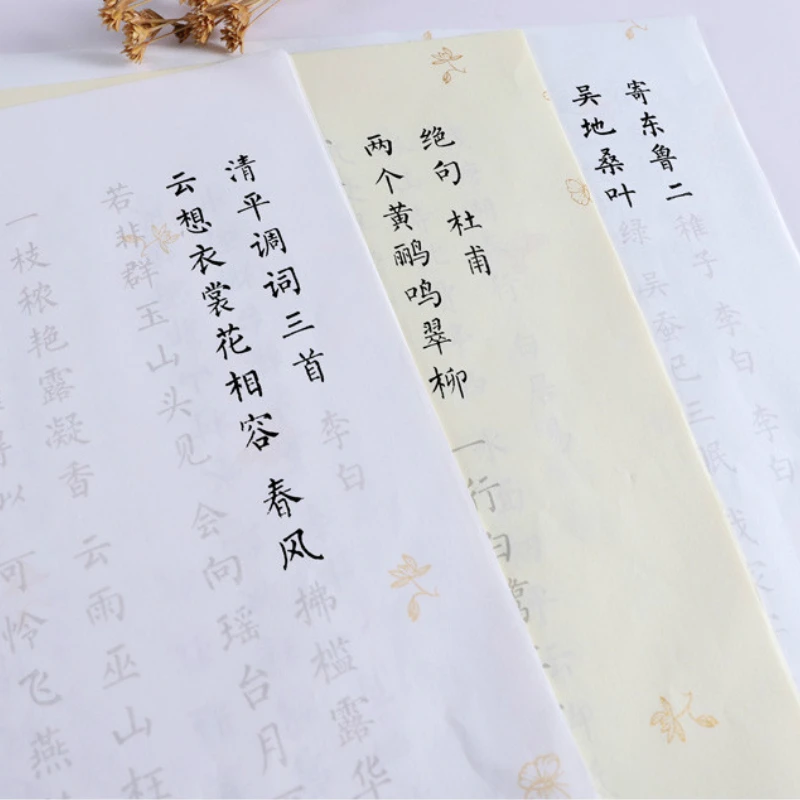 清平调词三首 李白
云想衣裳花相容 春风拂槛露华
若非群玉山头见 会向瑶台月
一枝秾艳露凝香 云雨巫山枉
得似 可怜飞燕
绝句 杜甫
两个黄鹂鸣翠柳 一行白鹭
寄东鲁二稚子 李白 李白
吴地桑叶绿 吴蚕已三眠 我家